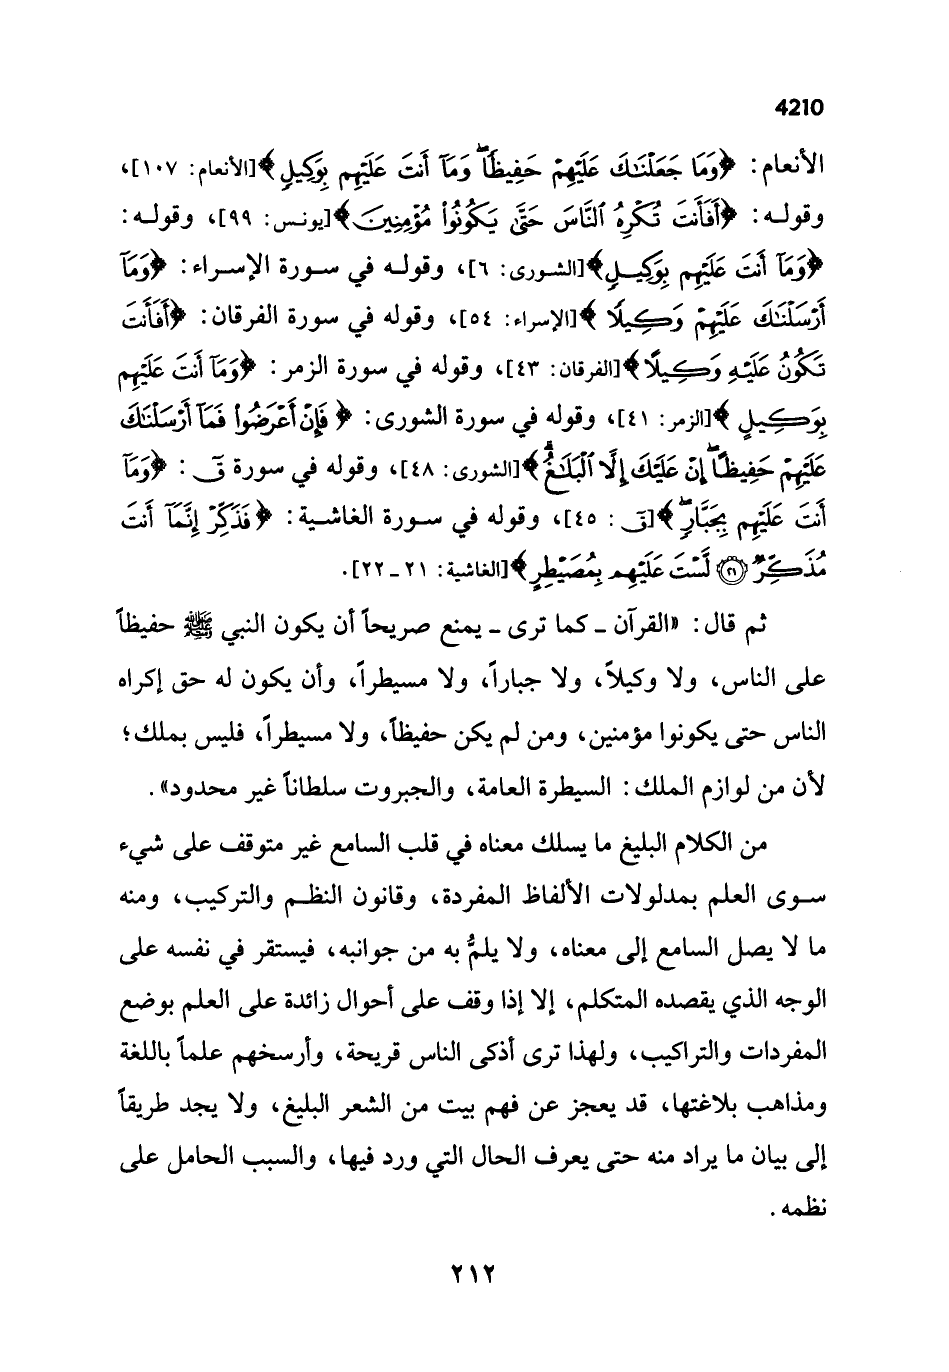 4210
الأنعام: ﴿وَمَا جَعَلْنَٰكَ عَلَيْهِمْ حَفِيظًاۖ وَمَآ أَنتَ عَلَيْهِم بِوَكِيلٍ﴾[الأنعام: ١٠٧]،
وقولـه: ﴿أَفَأَنتَ تُكْرِهُ ٱلنَّاسَ حَتَّىٰ يَكُونُوا۟ مُؤْمِنِينَ﴾[يونس: ٩٩]، وقولـه:
﴿وَمَآ أَنتَ عَلَيْهِم بِوَكِيلٍ﴾[الشورى: ٦]، وقولـه في سـورة الإسـراء: ﴿وَمَآ
أَرْسَلْنَٰكَ عَلَيْهِمْ وَكِيلًا﴾[الإسراء: ٥٤]، وقوله في سورة الفرقان: ﴿أَفَأَنتَ
تَكُونُ عَلَيْهِ وَكِيلًا﴾[الفرقان: ٤٣]، وقوله في سورة الزمر: ﴿وَمَآ أَنتَ عَلَيْهِم
بِوَكِيلٍ﴾[الزمر: ٤١]، وقوله في سورة الشورى: ﴿فَإِنْ أَعْرَضُوا۟ فَمَآ أَرْسَلْنَٰكَ
عَلَيْهِمْ حَفِيظًاۖ إِنْ عَلَيْكَ إِلَّا ٱلْبَلَٰغُ﴾[الشورى: ٤٨]، وقوله في سورة قٓ: ﴿وَمَآ
أَنتَ عَلَيْهِم بِجَبَّارٍۖ﴾[قٓ: ٤٥]، وقوله في سـورة الغاشـية: ﴿فَذَكِّرْ إِنَّمَآ أَنتَ
مُذَكِّرٌ ۝٢١ لَّسْتَ عَلَيْهِم بِمُصَيْطِرٍ﴾[الغاشية: ٢١ـ٢٢].
ثم قال: «القرآن ـ كما ترى ـ يمنع صريحاً أن يكون النبي ﷺ حفيظاً
على الناس، ولا وكيلاً، ولا جباراً، ولا مسيطراً، وأن يكون له حق إكراه
الناس حتى يكونوا مؤمنين، ومن لم يكن حفيظاً، ولا مسيطراً، فليس بملك؛
لأن من لوازم الملك: السيطرة العامة، والجبروت سلطاناً غير محدود».
من الكلام البليغ ما يسلك معناه في قلب السامع غير متوقف على شيء
سـوى العلم بمدلولات الألفاظ المفردة، وقانون النظـم والتركيب، ومنه
ما لا يصل السامع إلى معناه، ولا يلمُّ به من جوانبه، فيستقر في نفسه على
الوجه الذي يقصده المتكلم، إلا إذا وقف على أحوال زائدة على العلم بوضع
المفردات والتراكيب، ولهذا ترى أذكى الناس قريحة، وأرسخهم علماً باللغة
ومذاهب بلاغتها، قد يعجز عن فهم بيت من الشعر البليغ، ولا يجد طريقاً
إلى بيان ما يراد منه حتى يعرف الحال التي ورد فيها، والسبب الحامل على
نظمه.
٢١٢